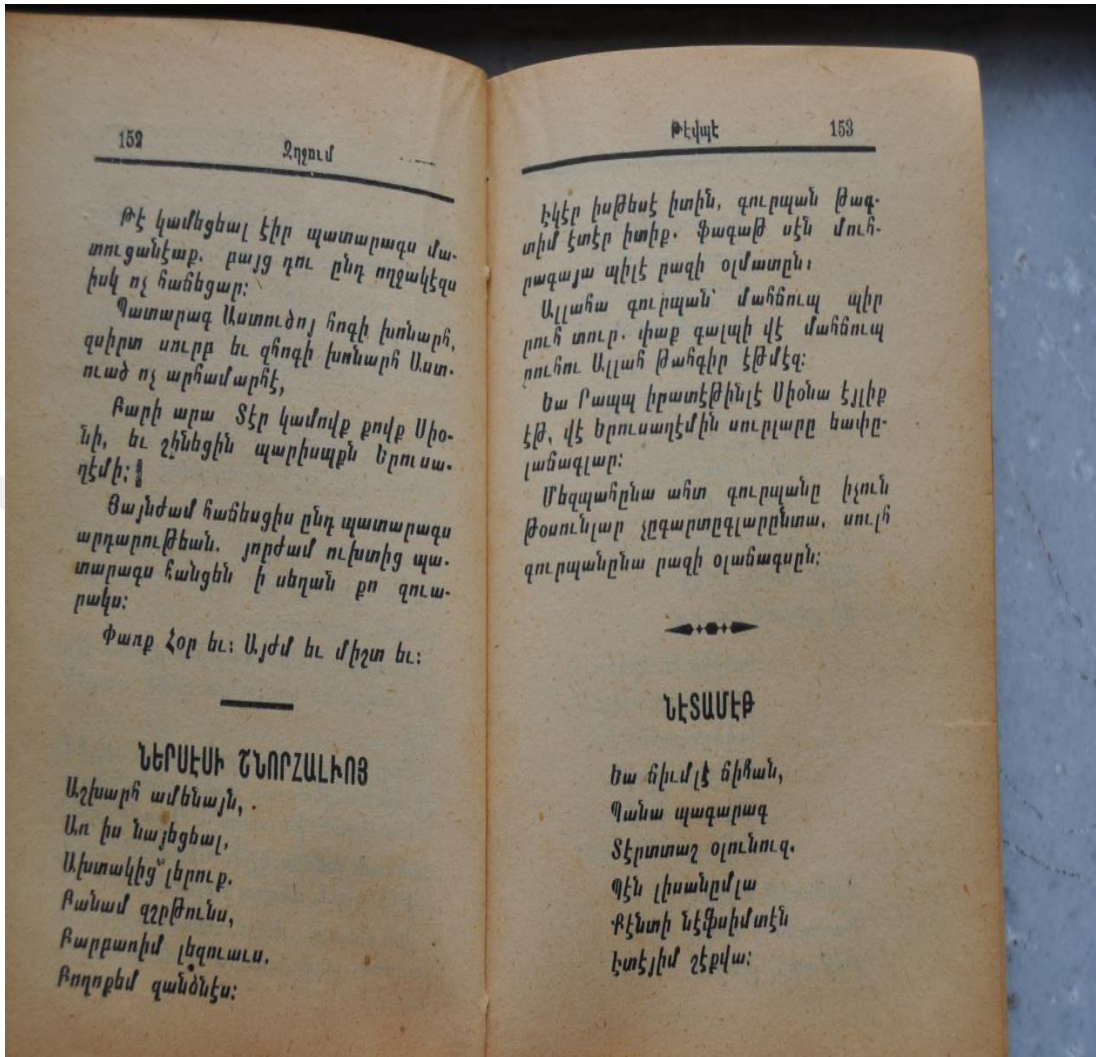 152
Զղջում
Թէ կամեցեալ էիր պատարագս մա-
տուցանէաք. բայց դու ընդ ողջակէզս
իսկ ոչ հաճեցար։
Պատարագ Աստուծոյ հոգի խոնարհ,
զսիրտ սուրբ եւ զհոգի խոնարհ Աստ-
ուած ոչ արհամարհէ,
Բարի արա Տէր կամովք քովք Սիօ-
նի, եւ շինեցին պարիսպքն Երուսա-
ղէմի։
Յայնժամ հաճեսցիս ընդ պատարագս
արդարութեան. յորժամ ուխտից պա-
տարագս հանցեն ի սեղան քո զուա-
րակս։
Փառք Հօր եւ։ Այժմ եւ միշտ եւ։
ՆԵՐՍԷՍԻ ՇՆՈՐՀԱԼԻՈՅ
Աշխարհ ամենայն,
Առ իս նայեցեալ,
Ախտակից լերուք.
Բանամ զշրթունս,
Բարբառիմ լեզուաւս.
Բողոքեմ զանձնէս։
Թէվպէ
153
Էկէր իսթեսէ իտին, գուրպան թագ-
տիմ էտէր իտիք. Ֆագաթ սէն մուհ-
րագայա պիլէ րազի օլմատըն։
Ալլահա գուրպան՝ մահճուպ պիր
րուհ տուր. փաք գալպի վէ մահճուպ
րուհու Ալլահ թահգիր էթմէզ։
Եա Րապպ իրատէթինլէ Սիօնա էյլիք
էթ, վէ Երուսաղէմին սուրլարը եափը-
լաճագլար։
Մեզպահընա ահտ գուրպանը իչուն
թօսունլար չըգարտըգլարընտա, սուլհ
գուրպանընա րազի օլաճագսըն։
ՆԷՏԱՄԷԹ
Եա ճիւմլէ ճիհան,
Պանա պագարագ
Տէրտտաշ օլունուզ.
Պէն լիսանըմլա
Քէնտի նէֆսիմտէն
Իտէյիմ շէքվա։